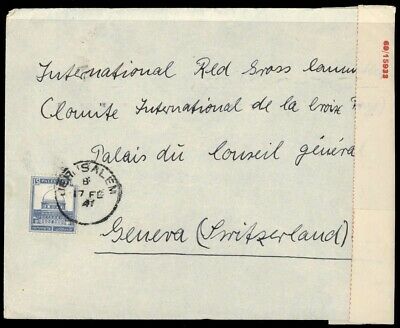 60/15933
International Red Gross
Clomité International de la Croix
Palais du Conseil généra
Geneva (Switzerland)
JERUSALEM
8
17 FE
41
15 PALESTINE 15